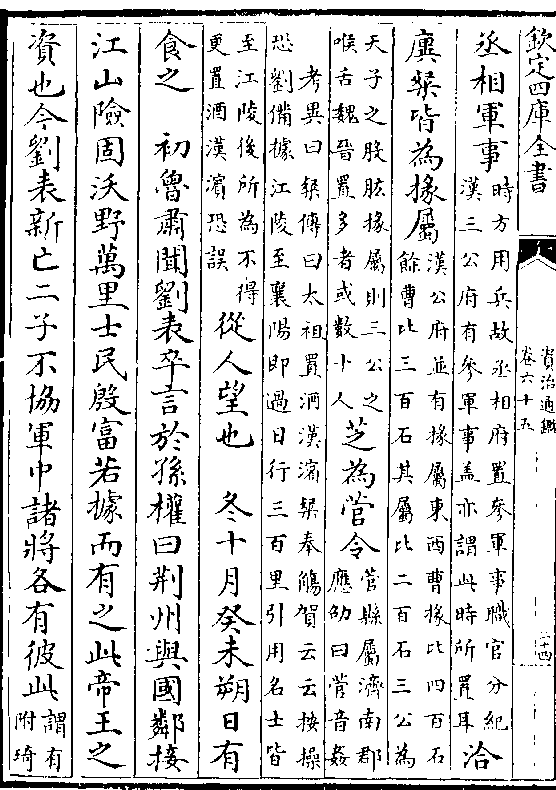 欽定四庫全書
資治通鑑
卷六十五
二十四
丞相軍事
時方用兵故丞相府置參軍事職官分紀
漢三公府有參軍事盖亦謂此時所置耳
洽
廙粲皆為掾屬
漢公府並有掾屬東西曹掾比四百石
餘曹比三百石其屬比二百石三公為
天子之股肱掾屬則三公之
喉舌魏晉置多者或數十人
芝為菅令
菅縣屬濟南郡
應劭曰菅音姦
考異曰粲傳曰太祖置酒漢濱粲奉觴賀云云按操
恐劉備據江陵至襄陽即過日行三百里引用名士皆
至江陵後所為不得
更置酒漢濱恐誤
從人望也 冬十月癸未朔日有
食之 初魯肅聞劉表卒言於孫權曰荆州與國鄰接
江山險固沃野萬里士民殷富若據而有之此帝王之
資也今劉表新亡二子不協軍中諸將各有彼此
謂有
附琦